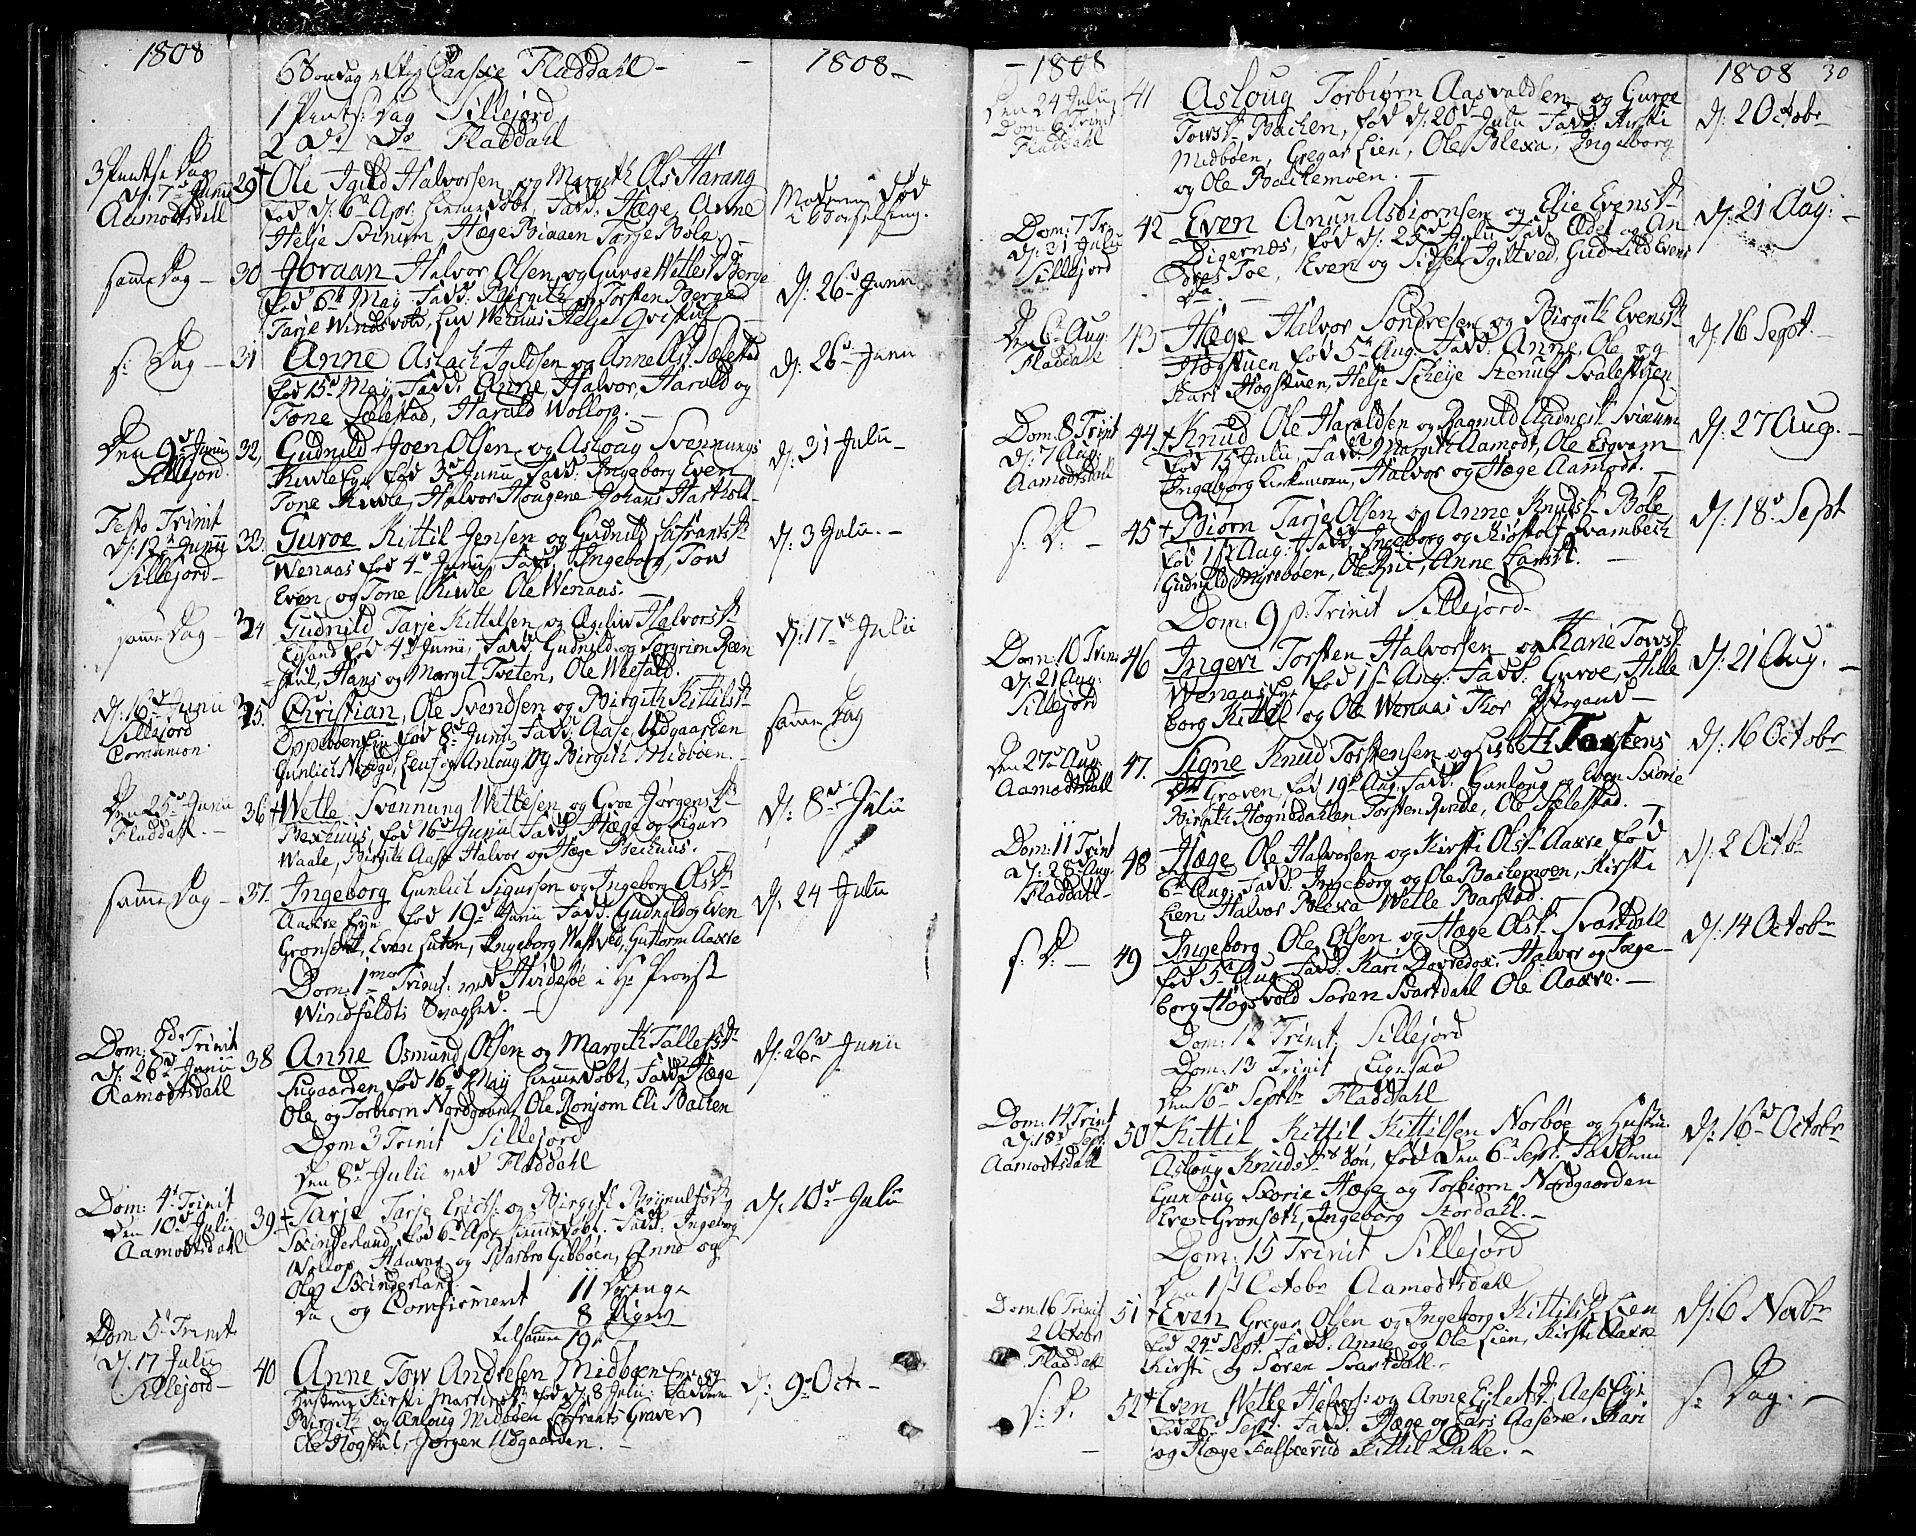 1808
6 Søndag efter Paaske Fladdahl
1808
1 Pentse Dag Sillejord
2 Do Do Fladdahl
3 Pentse Dag
d: 7d Junii
Aamodtsdall
29 Ole Igild Halvorsen og Margith Ols Harang
fød d: 6d Apr: hiemmedøbt. Fadd: Hæge, Anne
Helje Hæge Tarje Bola
Moderen død
i Barselseng.
samme Dag
30 Joraan Halvor Olsen og Guroe Wetlesd Berge
fød 6d May Fadd: Birgith og Torsten Berge
Tarje Windsvold, Helje Qvistul
d: 26d Junii
s: Dag
31 Anne Aslach Igildsen og Anne Asl. Sælestad
fød 15d May Fadd: Anne, Halvor, Harald og
Tone Sælestad, Harald Wollop.
d: 26d Junii
Den 9d Junii
Sillejord
32 Gudnild Joen Olsen og Asloug Svennungs
fød 3d Junii Fadd: Ingeborg Even
Tone Kivle, Halvor Hougene Johans
d: 31 Julii
Festo Trinit
d: 12d Junii
Sillejord
33. Guroe Kittil Jensen og Gudnild
Wenaas fød 4d Junii, Fadd: Ingeborg, Tov
Even og Tone Kivle Ole Wenaas.
d: 3 Julii.
samme Dag
34 Gudnild Tarje Kittelsen og Halvorsd
fød 4d Junii, Fadd: Gudnild og Torgrim Reen
skul, Hans og Margit Tveten, Ole
d: 17d Julii
d: 16d Junii
Sillejord
Comunion:
35. Christian, Ole Svendsen og Birgith Kittilsd
Oppeboen fød 8d Junii Fadd: Aase Udgaarden
Gunlich og Anloug og Birgith Midbøen.
samme Dag
Den 25d Junii
Fladdahl
36 Wetle Svannung Wetlesen og Groe Jørgensd
Bechuus, fød 16d Junii Fadd: Hæge og Sigur
Waale, Birgith Aase Halvor og Hæge Bechuus.
d: 8d Julii
samme Dag
37. Ingeborg Gunlich Sigursen og Ingeborg Olsd
Aaxre fød 19d Junii Fadd: Gudnild og Even
Gronset, Even Luton, Ingeborg Guttorm Aaxre
d. 24 Julii
Dom: 1ma Trinit: ved Hvidesøe i Hr Provst
Windfeldts Svaghed.
Dom: 2d Trinit
d: 26d Junii
Aamodtsdahl
38 Anne Osmund Olsen og Margith Tallefsd
fød 16d May hiemmedøbt, Fadd: Hæge
Ole og Torbiorn Nordgaard, Ole Ronjom Eli Bakken
d: 26d Junii
Dom 3 Trinit Sillejord
Den 8d Julii ved Fladdahl
Dom: 4d Trinit
Den 10d Julii
Aamodtsdahl
39 Tarje Tarje Erichs: og Birgith
Skinderland, fød 6d Apr hiemmedøbt. Fadd: Ingeborg
Wollop, og Barbro Gibbøen, Anne og
Ole Skinderland.
d: 10d Julii
Da og Confirmeret 11 Drenge
8 Piger
tilsamen 19
Dom 5d Trinit
d: 17 Julii
Sillejord
40 Anne Tow Andresen Midbøen og
Hustrue Kirsti Martinsd fød d: 8 Julii: Faddere
Birgith og Anloug Midbøen Graver
Ole Høgstul, Jørgen Udgaarden.
d: 9d Oct
1808
1808 30
Den 24 Julii
Dom: 6 Trinit
Fladdahl
41 Asloug Torbiørn Aasvaldsen og Guroe
Towsd Bachen, fød d: 20d Julii Fadd: Kirsti
Midbøen, Gregar Lien, Ole Blexa, Ingeborg
og Ole Bachemoen.
d: 2 Octobr
Dom: 7 Tr
d: 31 Julii
Sillejord
42 Even Anun Asbiørnsen og Elie Evensd
Digernes, fød d: 25d Julii Fadd: Eldri og An
dres Toe, Even og Gudnild Evens
da
d: 21 Aug:
Den 6d Aug:
Fladdahl
43 Hæge Halvor Sondresen og Birgith Evensd
Høgstuen fød 5d Aug. Fadd: Anne, Ole og
Kari Høgstuen, Helje Svalestuen
d: 16 Sept.
Dom: 8 Trinit
d: 7 Aug:
Aamodtsdahl
44 Knud Ole Haraldsen og Ragnild
fød 15 Julii, Fadd: Margith Aamodt, Ole
Ingeborg Kirkemoen, Halvor og Hæge Aamodt.
d: 27 Aug.
s: D:
45 Biørn Tarje Olsen og Anne Knudsd Bole
fød 1st Aug: Fadd: Ingeborg og Kvambech
Gudnild Myrebøen, Ole Anne Larsd.
d: 18d Sept
Dom: 9 p: Trinit Sillejord
Dom: 10 Trin
d: 21 Aug:
Sillejord
46 Ingeri Torsten Halvorsen og Karie Towsd
Wenaas fød 1st Aug: Fadd: Guroe, Hille
borg Kittil og Ole Wenaas Thor
d: 21 Aug.
Den 27d Aug
Aamodtsdall
47. Signe Knud Torstensen og Lisbeth Torstens
Dr Graven, fød 19d Aug. Fadd: Gunloug og Even Skorie
Birgith Hognedahlen Torsten Ole Sælestad.
d: 16 Octobr
Dom: 11 Trinit
d: 28 Aug:
Fladdahl
48 Hæge Ole Halvorsen og Kirsti Olsd Aaxre fød
6d Aug: Fadd: Ingeborg og Ole Bachemoen, Kirsti
Lien, Halvor Blexa Wetle Barstad.
d: 2 Octb
s: D:
49 Ingeborg Ole Olsen og Hæge Olsd Svartdall
fød 5d Aug Fadd: Kari Halvor og Inge
borg Høgsvold Søren Svartdahl Ole Aaxre.
d: 14 Octobr
Dom: 12 Trinit: Sillejord
Dom: 13 Trinit
Den 16d Septbr Fladdahl
Dom: 14 Trinit
d: 18d Sept:
Aamodtsdahl
50 Kittil Kittil Kittilsen Norbøe og Hustrue
Asloug Knudsdr Søn, fød Den 6d Sept: Faddere
Gunloug Skorie Hæge og Torbiørn Nordgaarden
Even Gronseth, Ingeborg Stordahl.
d: 16d Octobr
Dom: 15 Trinit Sillejord
Den 1st Octobr Aamodtsdahl
Dom 16 Trinit
2 Octobr
Fladdall
51 Even Gregar Olsen og Ingeborg Kittilsd Lien
fød 24d Sept. Fadd: Anne og Ole Lien, Kirsti Aaxre
Kirsti og Søren Svartdall.
d: 6 Novbr
s: D.
52 Even Wetle Halvors: og Anne Aase
fød 26d Sept. Fadd. Hæge og Lars Aasene, Kari
og Hæge Kittil Dahle.
s: Dag.